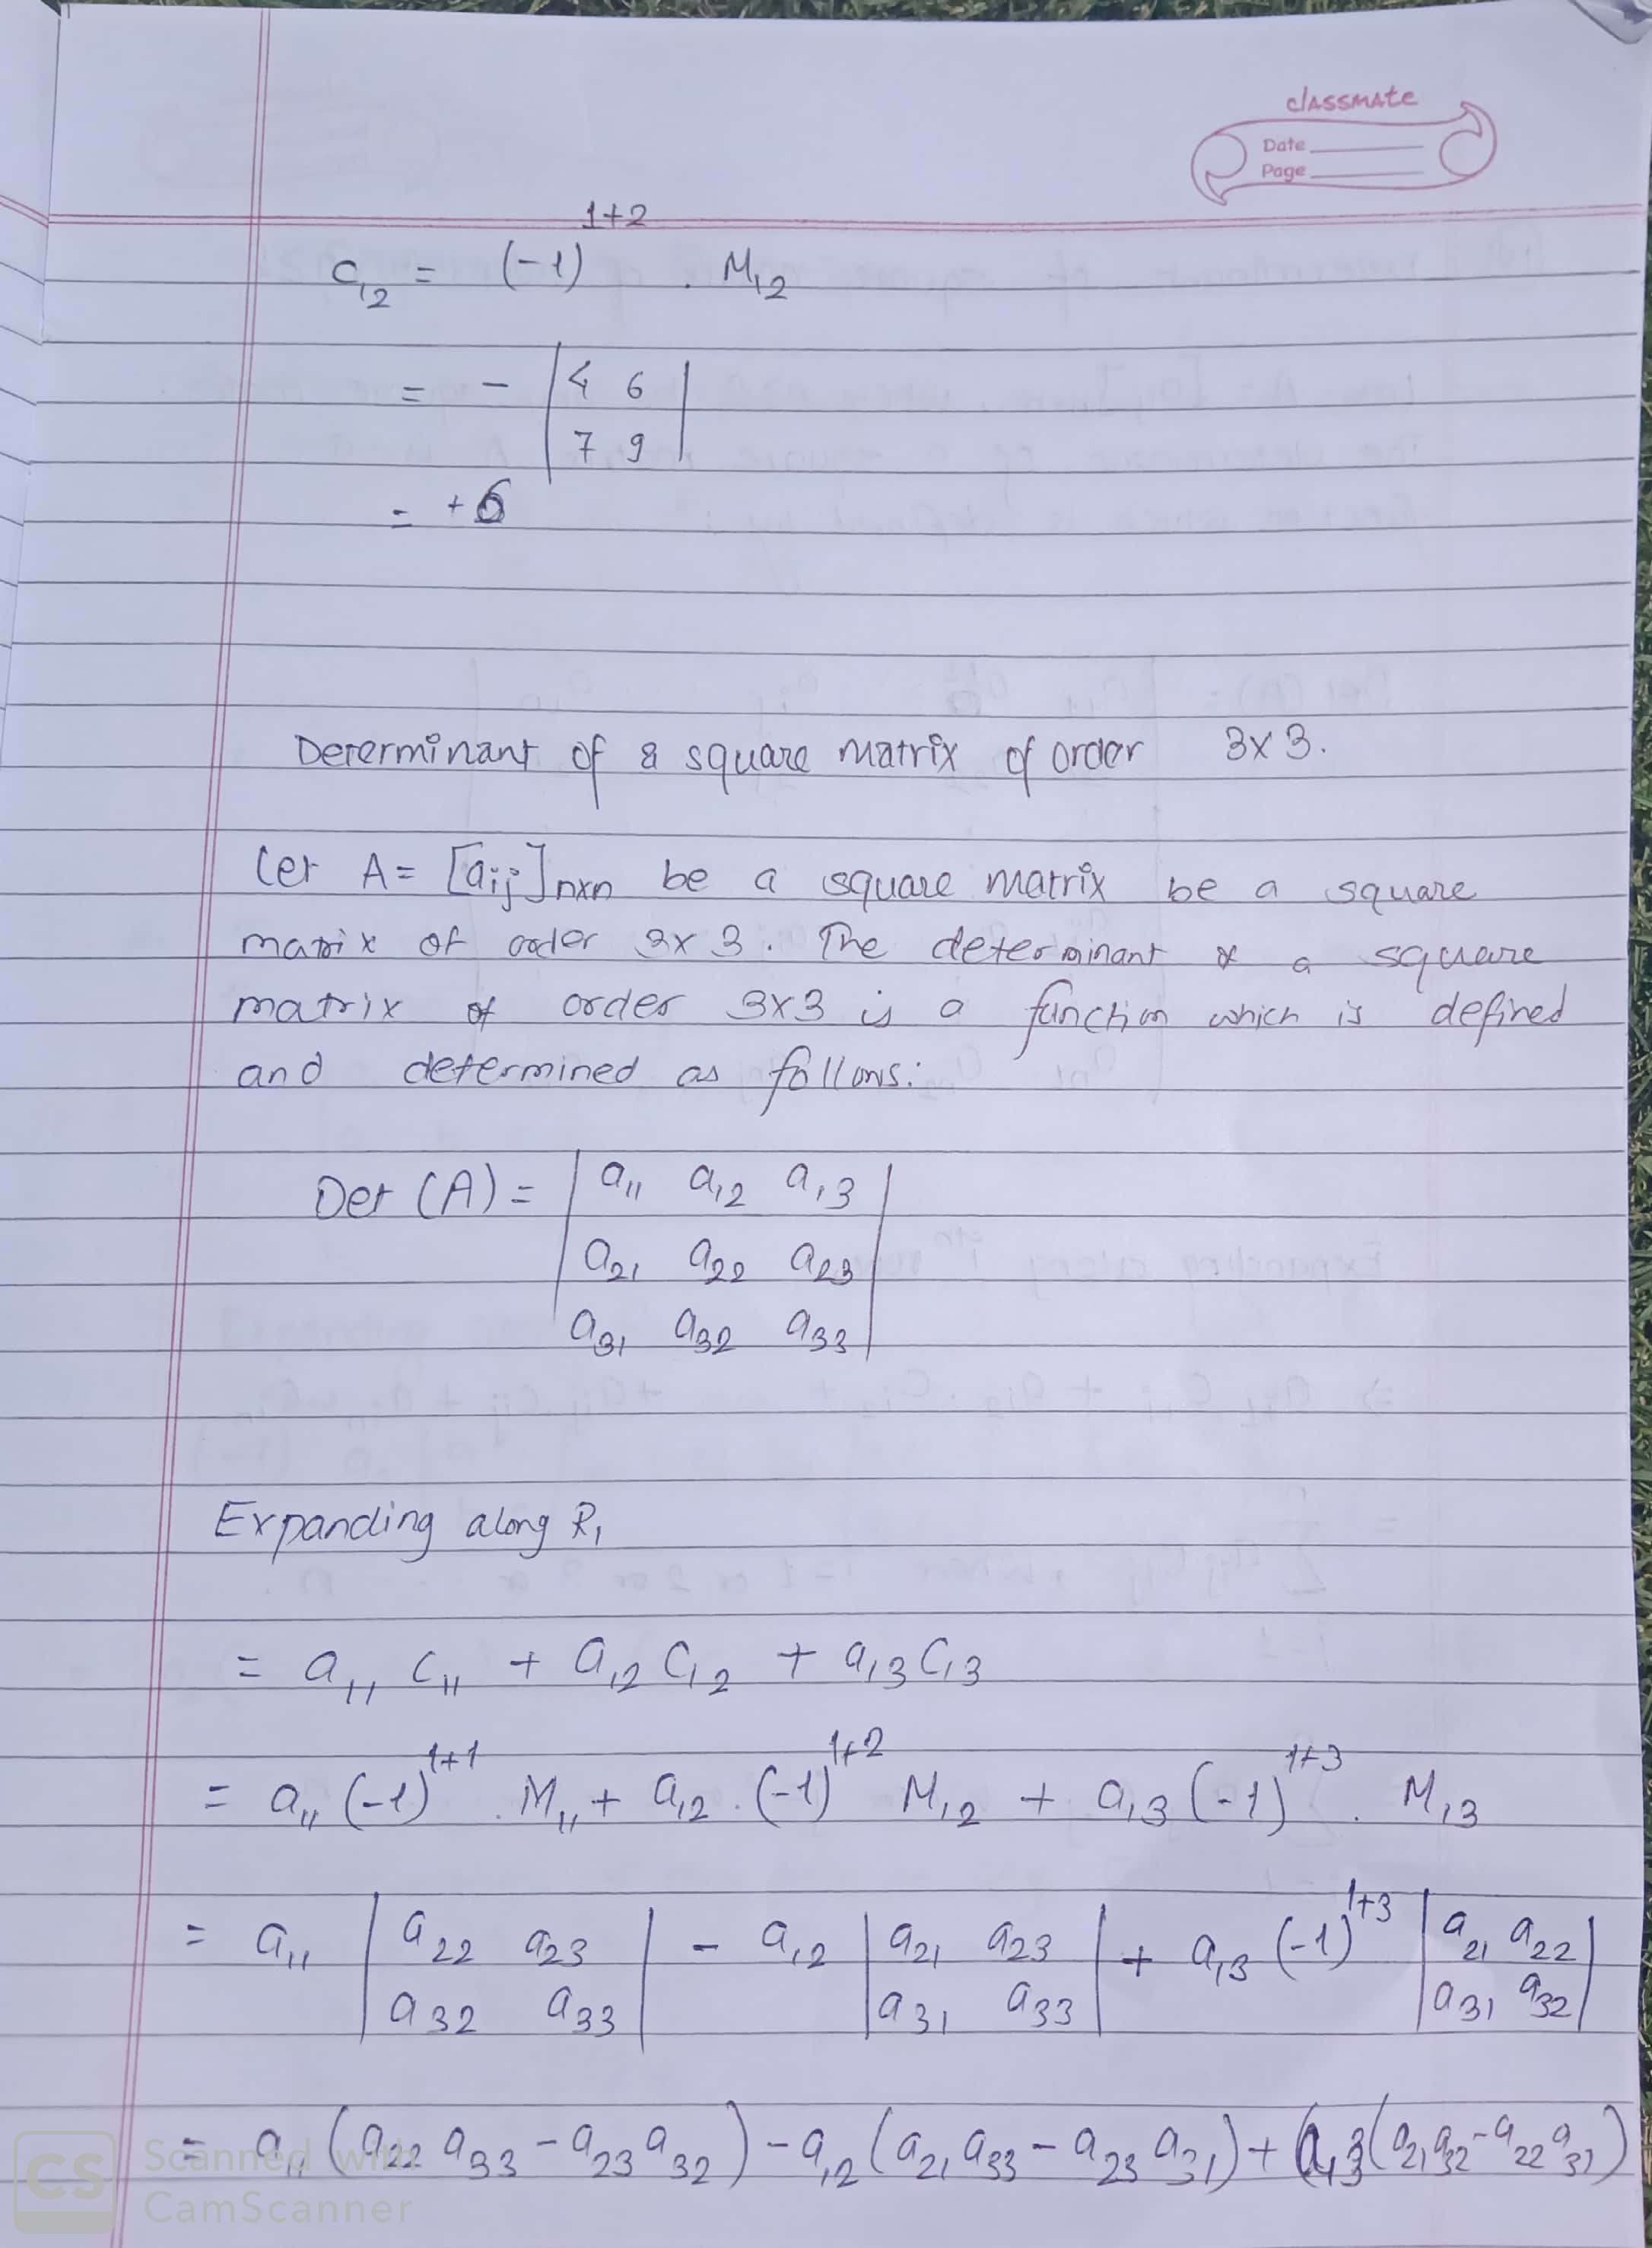 classmate
Date
Page
C₁₂ = (-1)¹⁺² . M₁₂
= - | 4 6 |
| 7 9 |
= +6
Determinant of a square matrix of order 3x3.
Let A = [aij]nxn be a square matrix be a square
matrix of order 3x3. The determinant of a square
matrix of order 3x3 is a function which is defined
and determined as follows:
Det (A) = | a₁₁ a₁₂ a₁₃ |
| a₂₁ a₂₂ a₂₃ |
| a₃₁ a₃₂ a₃₃ |
Expanding along R₁
= a₁₁ C₁₁ + a₁₂ C₁₂ + a₁₃ C₁₃
= a₁₁ (-1)¹⁺¹ . M₁₁ + a₁₂ . (-1)¹⁺² M₁₂ + a₁₃ (-1)¹⁺³ . M₁₃
= a₁₁ | a₂₂ a₂₃ | - a₁₂ | a₂₁ a₂₃ | + a₁₃ (-1)¹⁺³ | a₂₁ a₂₂ |
| a₃₂ a₃₃ | | a₃₁ a₃₃ | | a₃₁ a₃₂ |
= a₁₁ (a₂₂ a₃₃ - a₂₃ a₃₂) - a₁₂ (a₂₁ a₃₃ - a₂₃ a₃₁) + a₁₃ (a₂₁ a₃₂ - a₂₂ a₃₁)
CS Scanned with
CamScanner